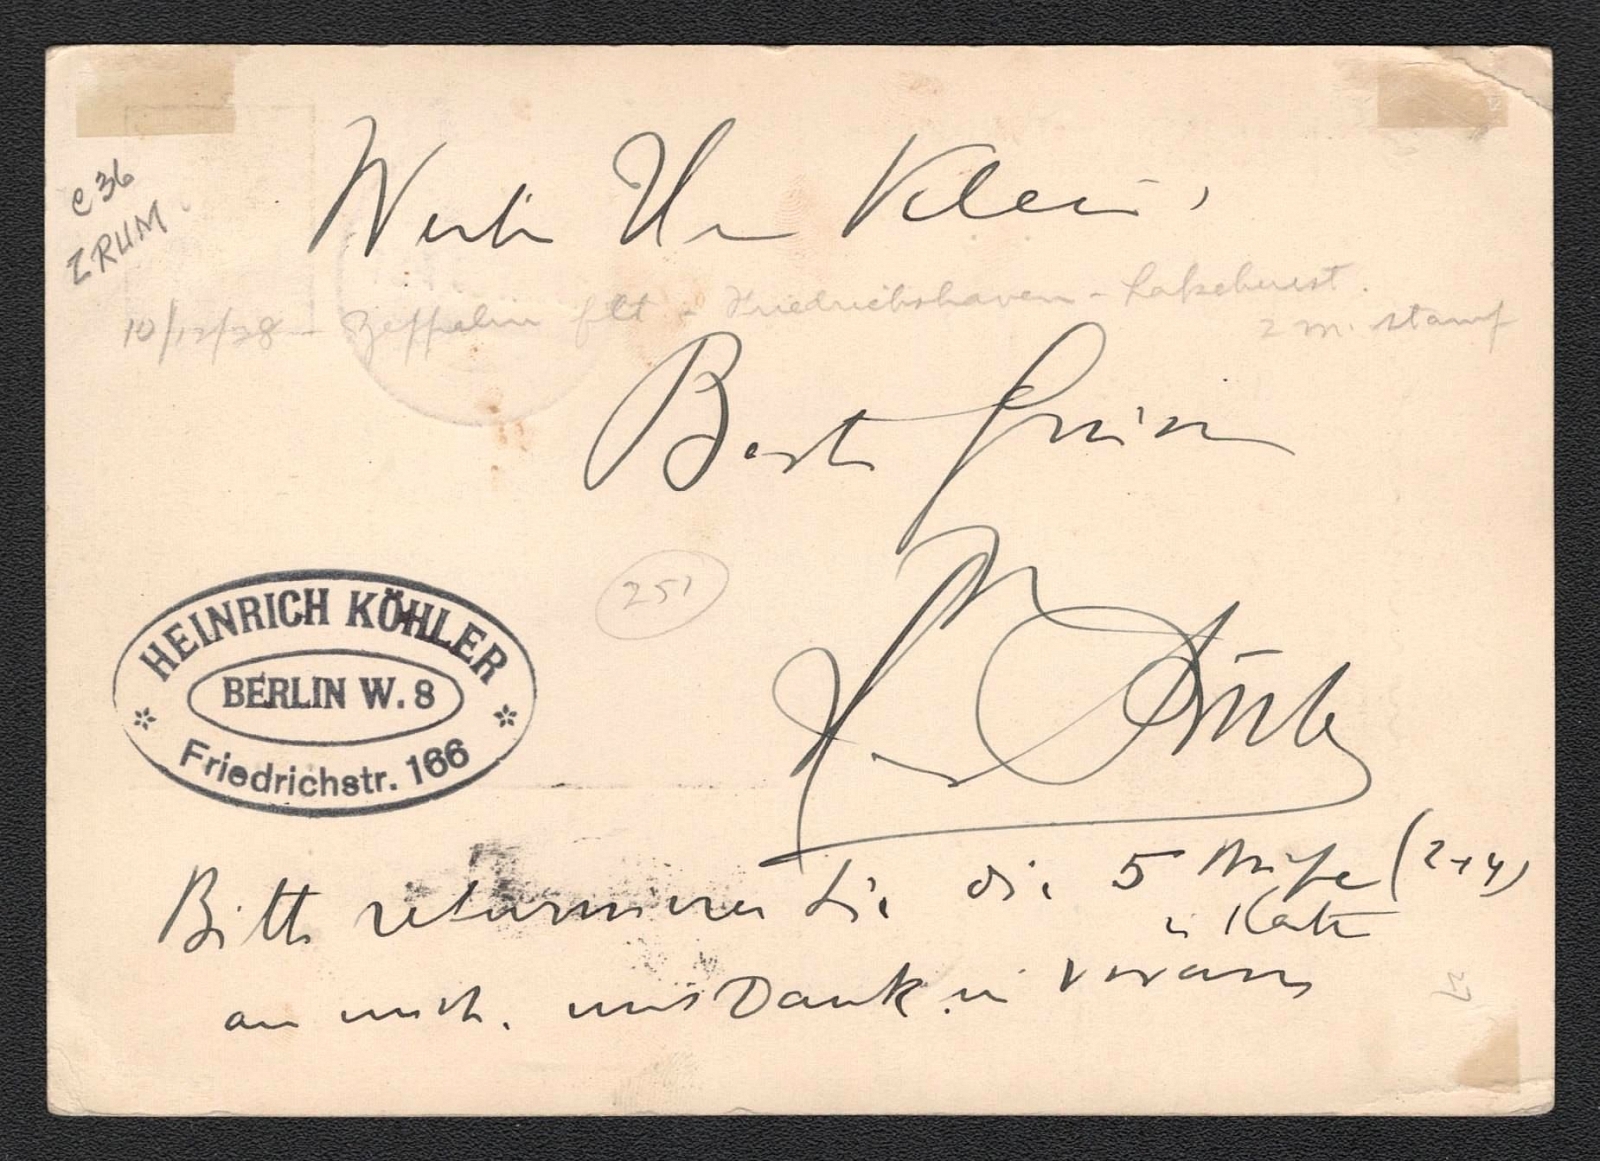 C 36
ZRUM
Werter Herr Klein,
10/12/28 - Zeppelin flt - Friedrichshaven - Lakehurst.
2 m. stamp
Beste Grüsse
251
HEINRICH KÖHLER
BERLIN W. 8
Friedrichstr. 166
Bitte returnieren Sie die 5 Briefe (2+4)
u Karte
an mich. uns Dank im voraus